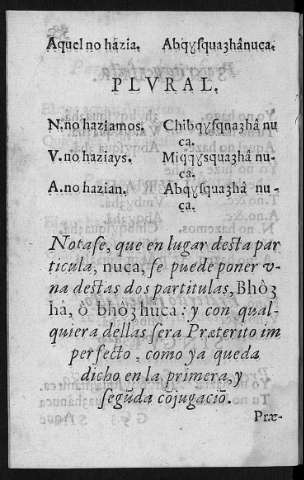 Aquel no hazia. Abqɣsquaʒhânuca.
PLVRAL.
N. no haziamos. Chibqɣsqnaʒhâ nu
ca.
V. no haziays. Miqɣsquaʒhâ nu-
ca.
A. no hazian. Abqɣsquaʒhâ nu-
ça.
Notase, que en lugar desta par
ticula, nuca, se puede poner v-
na destas dos partitulas, Bhôʒ
há, ô bhôʒhuca: y con qual-
quiera dellas sera Præterito im
perfecto, como ya queda
dicho en la primera, y
segũda cõjugaciõ.
Præ-